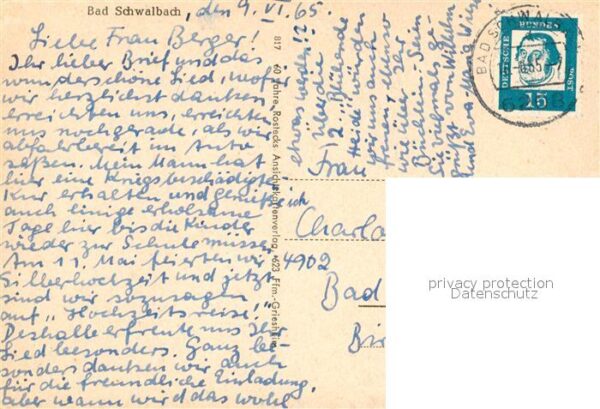 Bad Schwalbach, den 9. VI. 65.
Liebe Frau Berger!
Ihr lieber Brief und das
wunderschöne Lied, wofür
wir herzlichst danken,
erreichten uns, erreichten
uns noch gerade, als wir
abfahrbereit im Auto
säßen. Mein Mann hat
hier eine Kriegsbeschädigten
Kur erhalten und genieße ich
auch einige erholsame
Tage hier bis die Kinder
wieder zur Schule müssen.
Am 11. Mai feierten wir
Silberhochzeit und jetzt
sind wir sozusagen
auf "Hochzeitsreise".
Deshalb erfreute uns Ihr
Lied besonders. Ganz be-
sonders danken wir auch
für die freundliche Einladung,
aber wann wird das wohl
etwas werden!?
Über die
2 "Blühende
Heide" würden
wir uns auch
ebenso
freuen
wie über Ihr
Büchlein. Sein
Sie vielmals ge-
grüßt
817 60 Jahre Rostecks Ansichtskartenverlag 623 Ffm.-Griesheim
DEUTSCHE BUNDESPOST
15
BAD SCHWALBACH
Frau
4902
Bad
privacy protection
Datenschutz